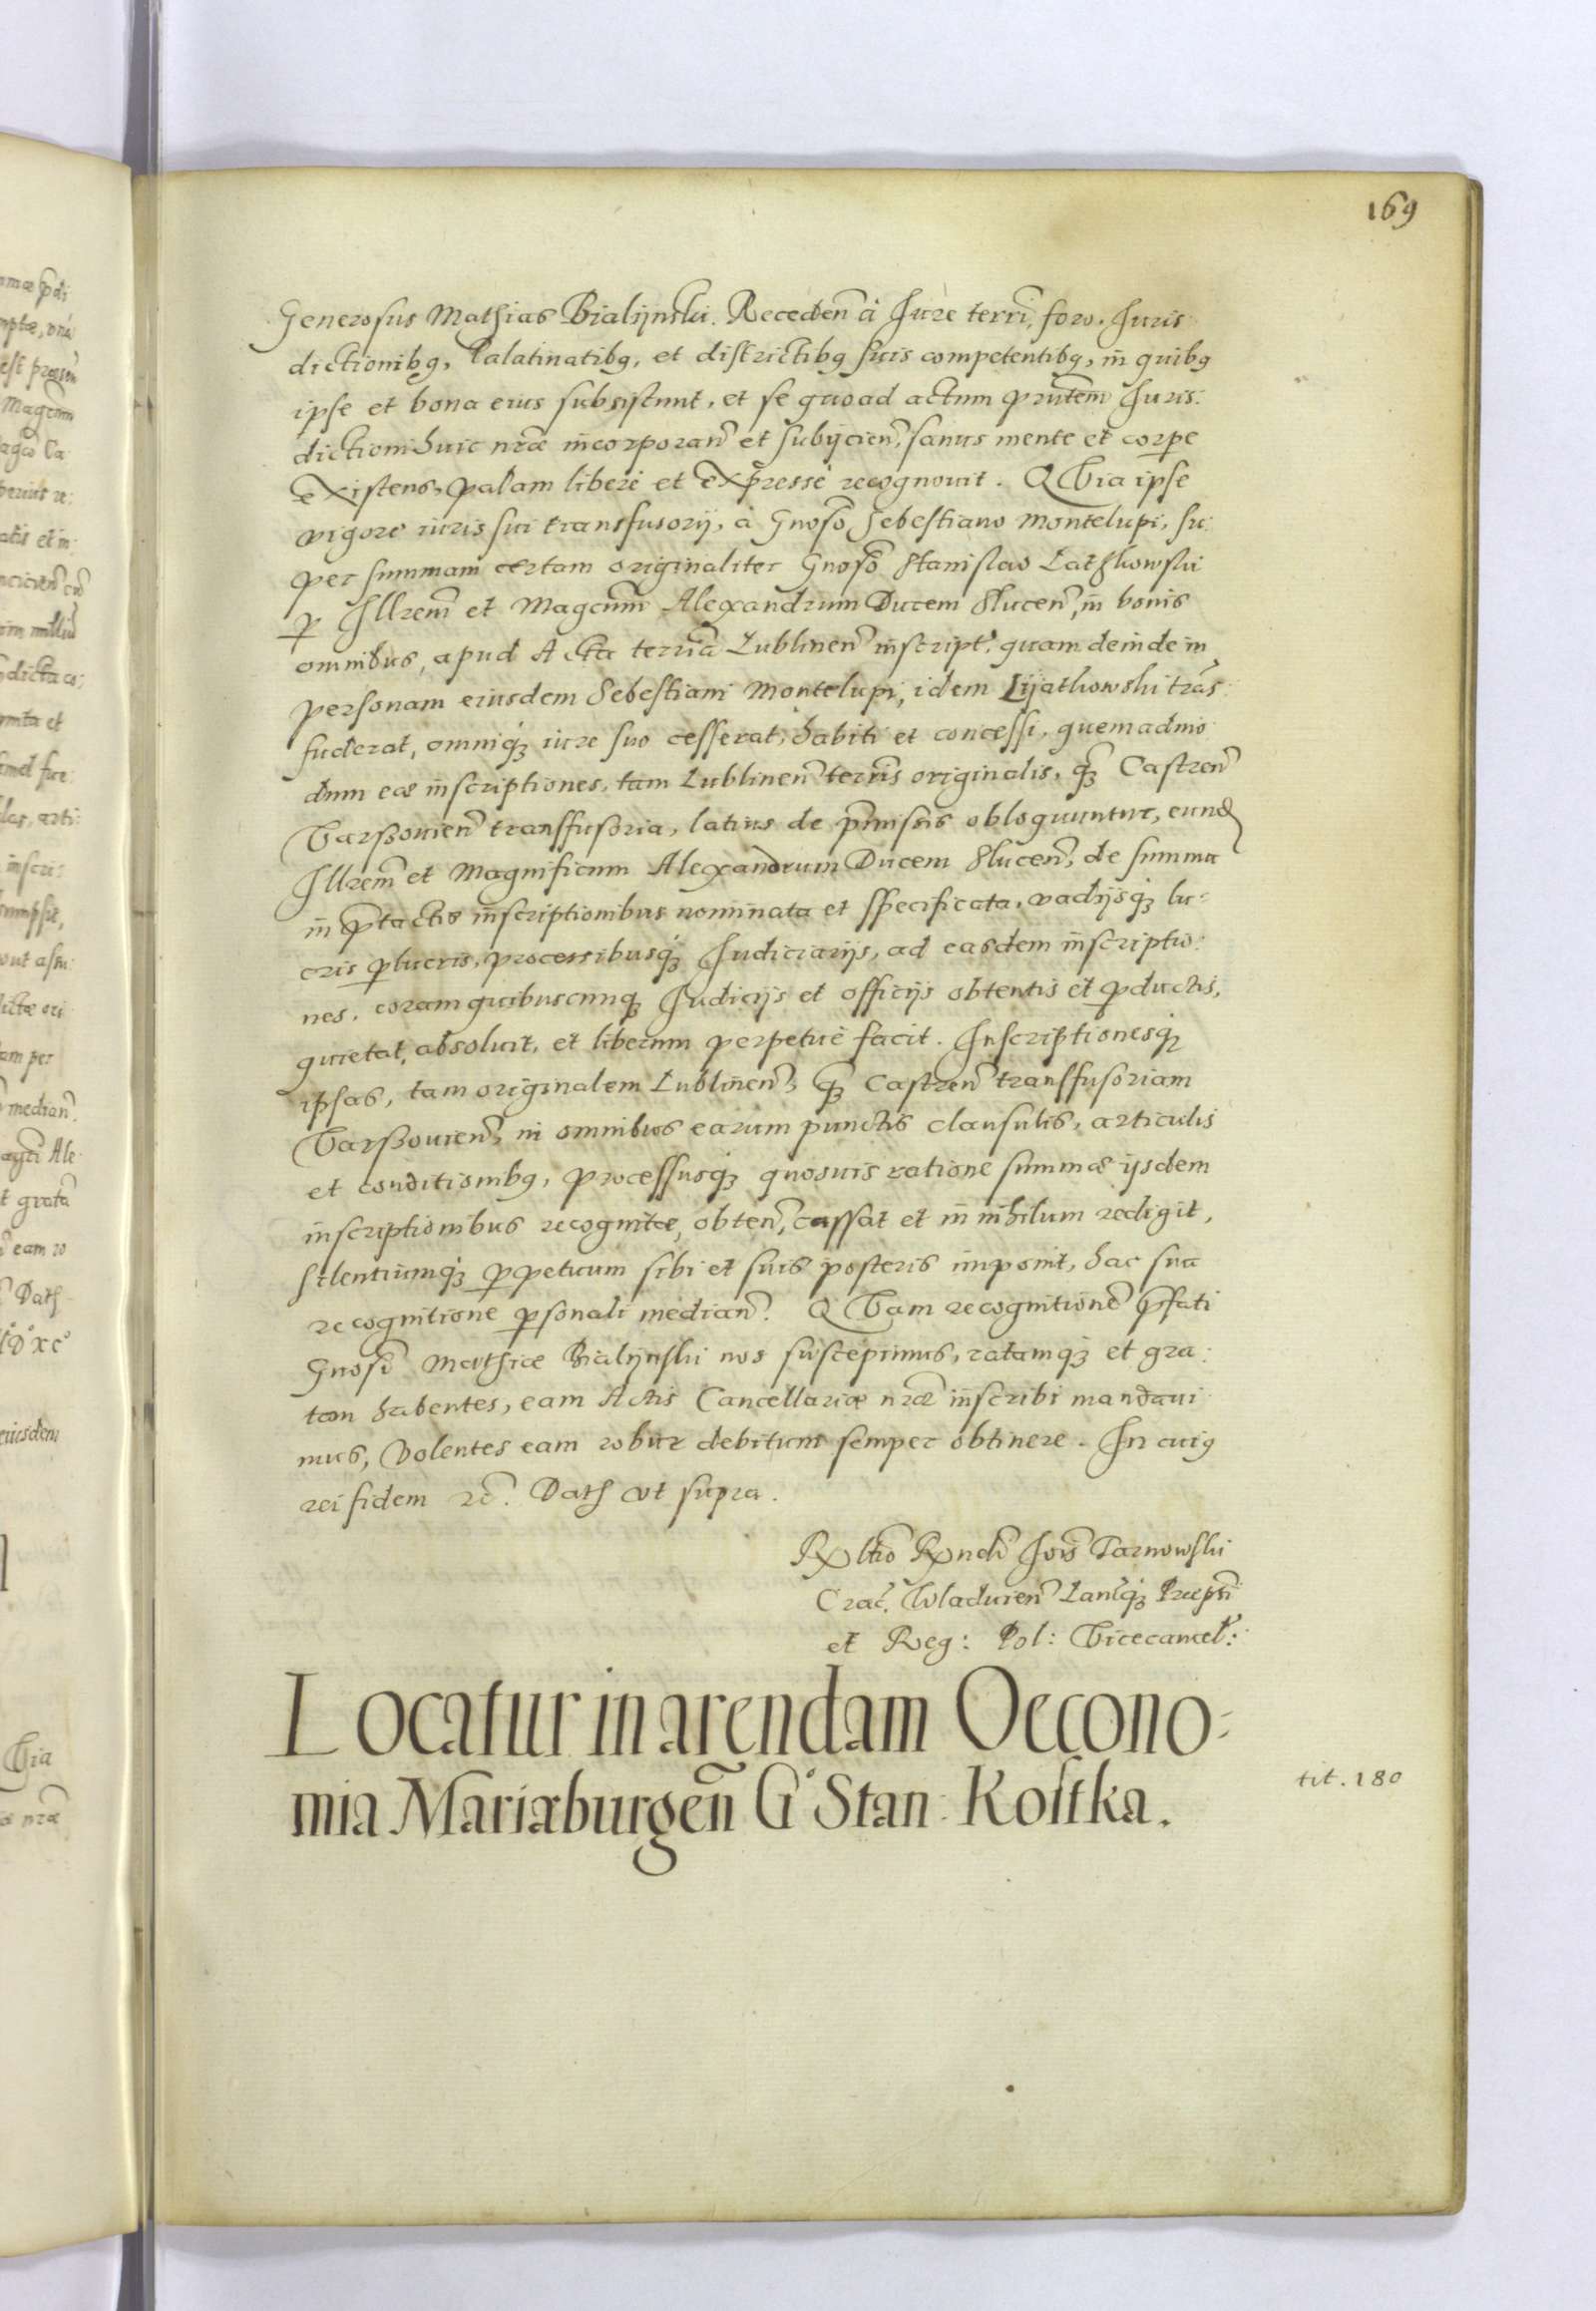 169
Generosus Mathias Bialijnski. Receden̄ à Jure terrī, foro. Juris
dictionibq, Palatinatibq, et districtibq suis competentibq, in quibq
ipse et bona eius subsistunt, et se quoad actum prñtem Juris:
dictioni huic nræ incorporan̄ et subijcien̄, sanus mente et corpe
existens, palam liberè et expressè recognouit. QVia ipse
vigore iuris sui transfusorij, à Gnoso Sebestiano Montelupi, su:
per summam certam originaliter Gnoso Stanislao Lathkowski
p Illrem et Magcum Alexandrum Ducem Slucen̄, in bonis
omnibus, apud Acta terria Lublinen̄ inscript: quam deinde in
personam eiusdem Sebestiani Montelupi, idem Lijathowski trās:
fuderat, omniq́ꝫ iure suo cesserat, habiti et concessi, quemadmo
dum eæ inscriptiones, tam Lublinen̄ terrīs originalis, qꝫ Castren̄
Varssouien̄ transfusoria, latius de pmissis obloquuntur, eund
Illrem et Magnificum Alexandrum Ducem Slucen̄, de summa
in ptactis inscriptionibus nominata et specificata, vadijsq́ꝫ lu:
cris perlucris, processibusq́ꝫ Judiciarijs, ad easdem inscriptio:
nes, coram quibuscunqꝫ Judicijs et officijs obtentis et pductis,
quietat, absoluit, et liberum perpetuè facit. Inscriptionesq́ꝫ
ipsas, tam originalem Lublinen̄, qꝫ Castren̄ transfusoriam
Varssouien̄, in omnibus earum punctis clausulis, articulis
et conditionibq, processusq́ꝫ quosuis ratione summæ ijsdem
inscriptionibus recognitæ, obten̄, cassat et in nihilum redigit,
silentiumq́ꝫ ppetuum sibi et suis posteris imponit, hac sua
recognitione psonali median̄. QVam recognitionē pfati
Gnosi Mathiæ Bialijnski nos suscepimus, ratamq́ꝫ et gra:
tam habentes, eam Actis Cancellariæ nræ inscribi mandaui
mus, Volentes eam robur debitum semper obtinere. In cuiq
rei fidem rc̄. Dath vt supra.
Rltio Rndi Jois Tarnowski
Crac. Wladuien̄ Lanq́ꝫ Præpti
et Reg: Pol: Vicecancel:
Locatur in arendam Oecono=
mia Mariæburgen̄ G° Stan: Kostka.
tit. 180